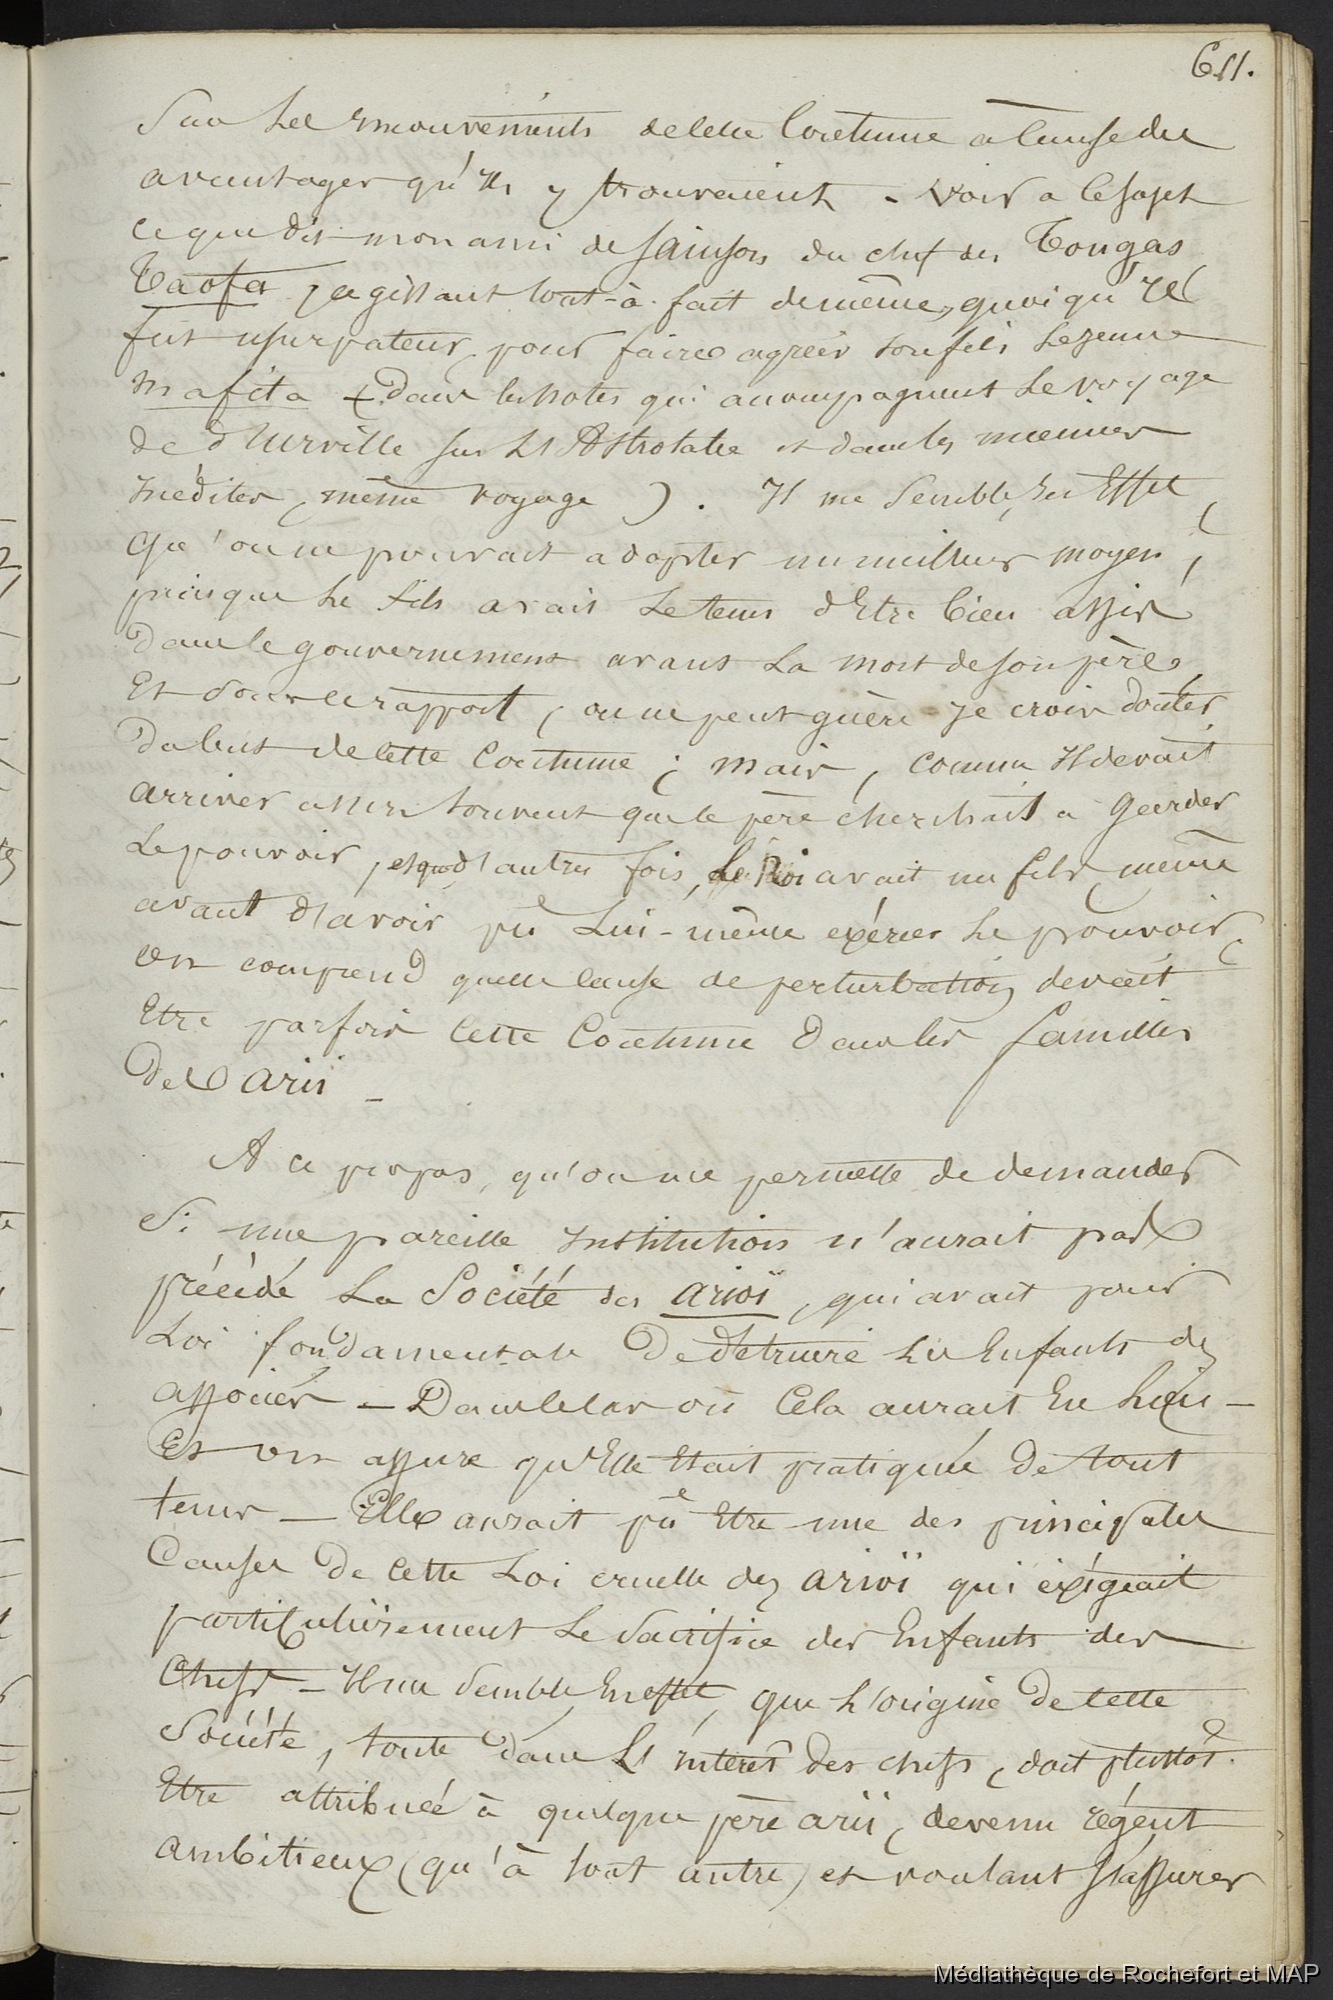 611.
Sur les mouvements de cette Coutume à cause des
avantages qu'ils y trouvaient. Voir a ce sujet
ce que dit mon ami de Sainson du chef des Tongas
Taofa, agissant tout-à-fait de même, quoi qu'Il
fut usurpateur, pour faire agréer son fils Le jeune
Mafita (Dans les notes qui accompagnent Le voyage
de d'Urville sur L'Astrolabe et dans les miennes
Inédites, même voyage). Il me Semble, En Effet,
Qu'on ne pouvait adopter un meilleur moyen,
puisque Le fils avait Le tems d'Etre bien assis
Dans le gouvernement avant La mort de son père,
Et sous ce rapport, on ne peut guère Je crois douter
Du but de cette Coutume; mais, comme Il devait
arriver assez souvent que le père cherchait a garder
Le pouvoir, et que d'autres fois, le Roi avait un fils, même
avant d'avoir pû Lui-même exercer Le pouvoir,
on comprend quelle cause de perturbation devait
Etre parfois Cette Coutume Dans les familles
Des Arii _
A ce propos, qu'on me permette de demander
Si une pareille Institution n'aurait pas
précédé La Société des Arioï, qui avait pour
Loi fondamentale De détruire Les Enfants des
associés — Dans le cas où Cela aurait Eu Lieu —
Et on assure qu'Elle Etait pratiquée De tout
tems — Elle aurait pû Etre une des principales
Causes De cette Loi cruelle des Arioï qui exigeait
particulièrement Le Sacrifice des Enfants des
Chefs — Il me Semble, En effet, que L'origine De cette
Société, toute dans L'intérêt Des chefs, doit plutôt
Etre attribuée à quelque père arii, devenu régent
Ambitieux (qu'à tout autre) et voulant s'assurer
Médiathèque de Rochefort et MAP